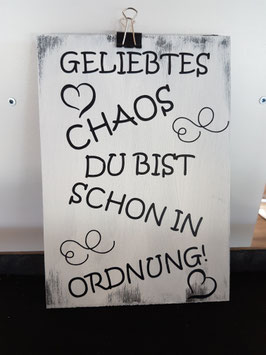 GELIEBTES
CHAOS
DU BIST
SCHON IN
ORDNUNG!